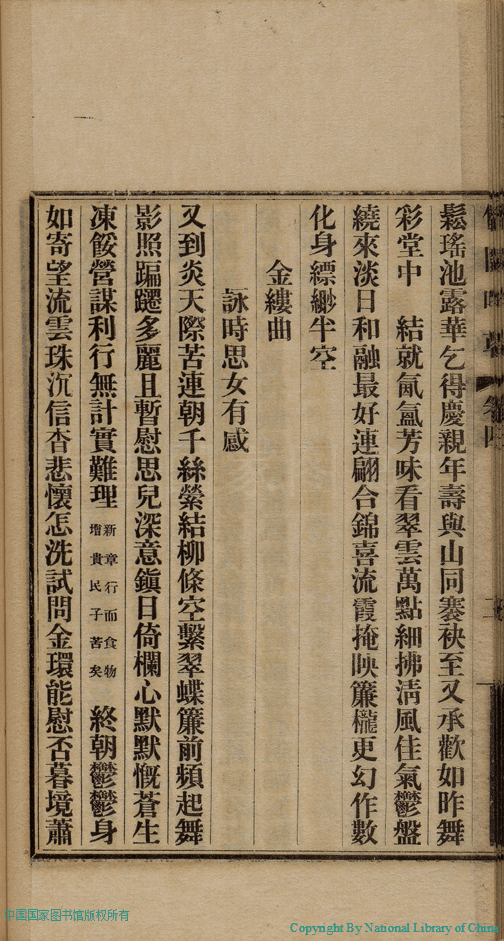 鬆瑤池露華乞得慶親年壽與山同褰袂至又承歡如昨舞
彩堂中　結就氤氳芳味看翠雲萬點細拂清風佳氣鬱盤
繞來淡日和融最好連翩合錦喜流霞掩映簾櫳更幻作數
化身縹緲半空
金縷曲
詠時思女有感
又到炎天際苦連朝千絲縈結柳條空繫翠蝶簾前頻起舞
影照蹁躚多麗且暫慰思兒深意鎮日倚欄心默默慨蒼生
凍餒營謀利行無計實難理
新章行而食物
增貴民子苦矣
終朝鬱鬱身
如寄望流雲珠沉信杳悲懷怎洗試問金環能慰否暮境蕭
中国国家图书馆版权所有
Copyright By National Library of China